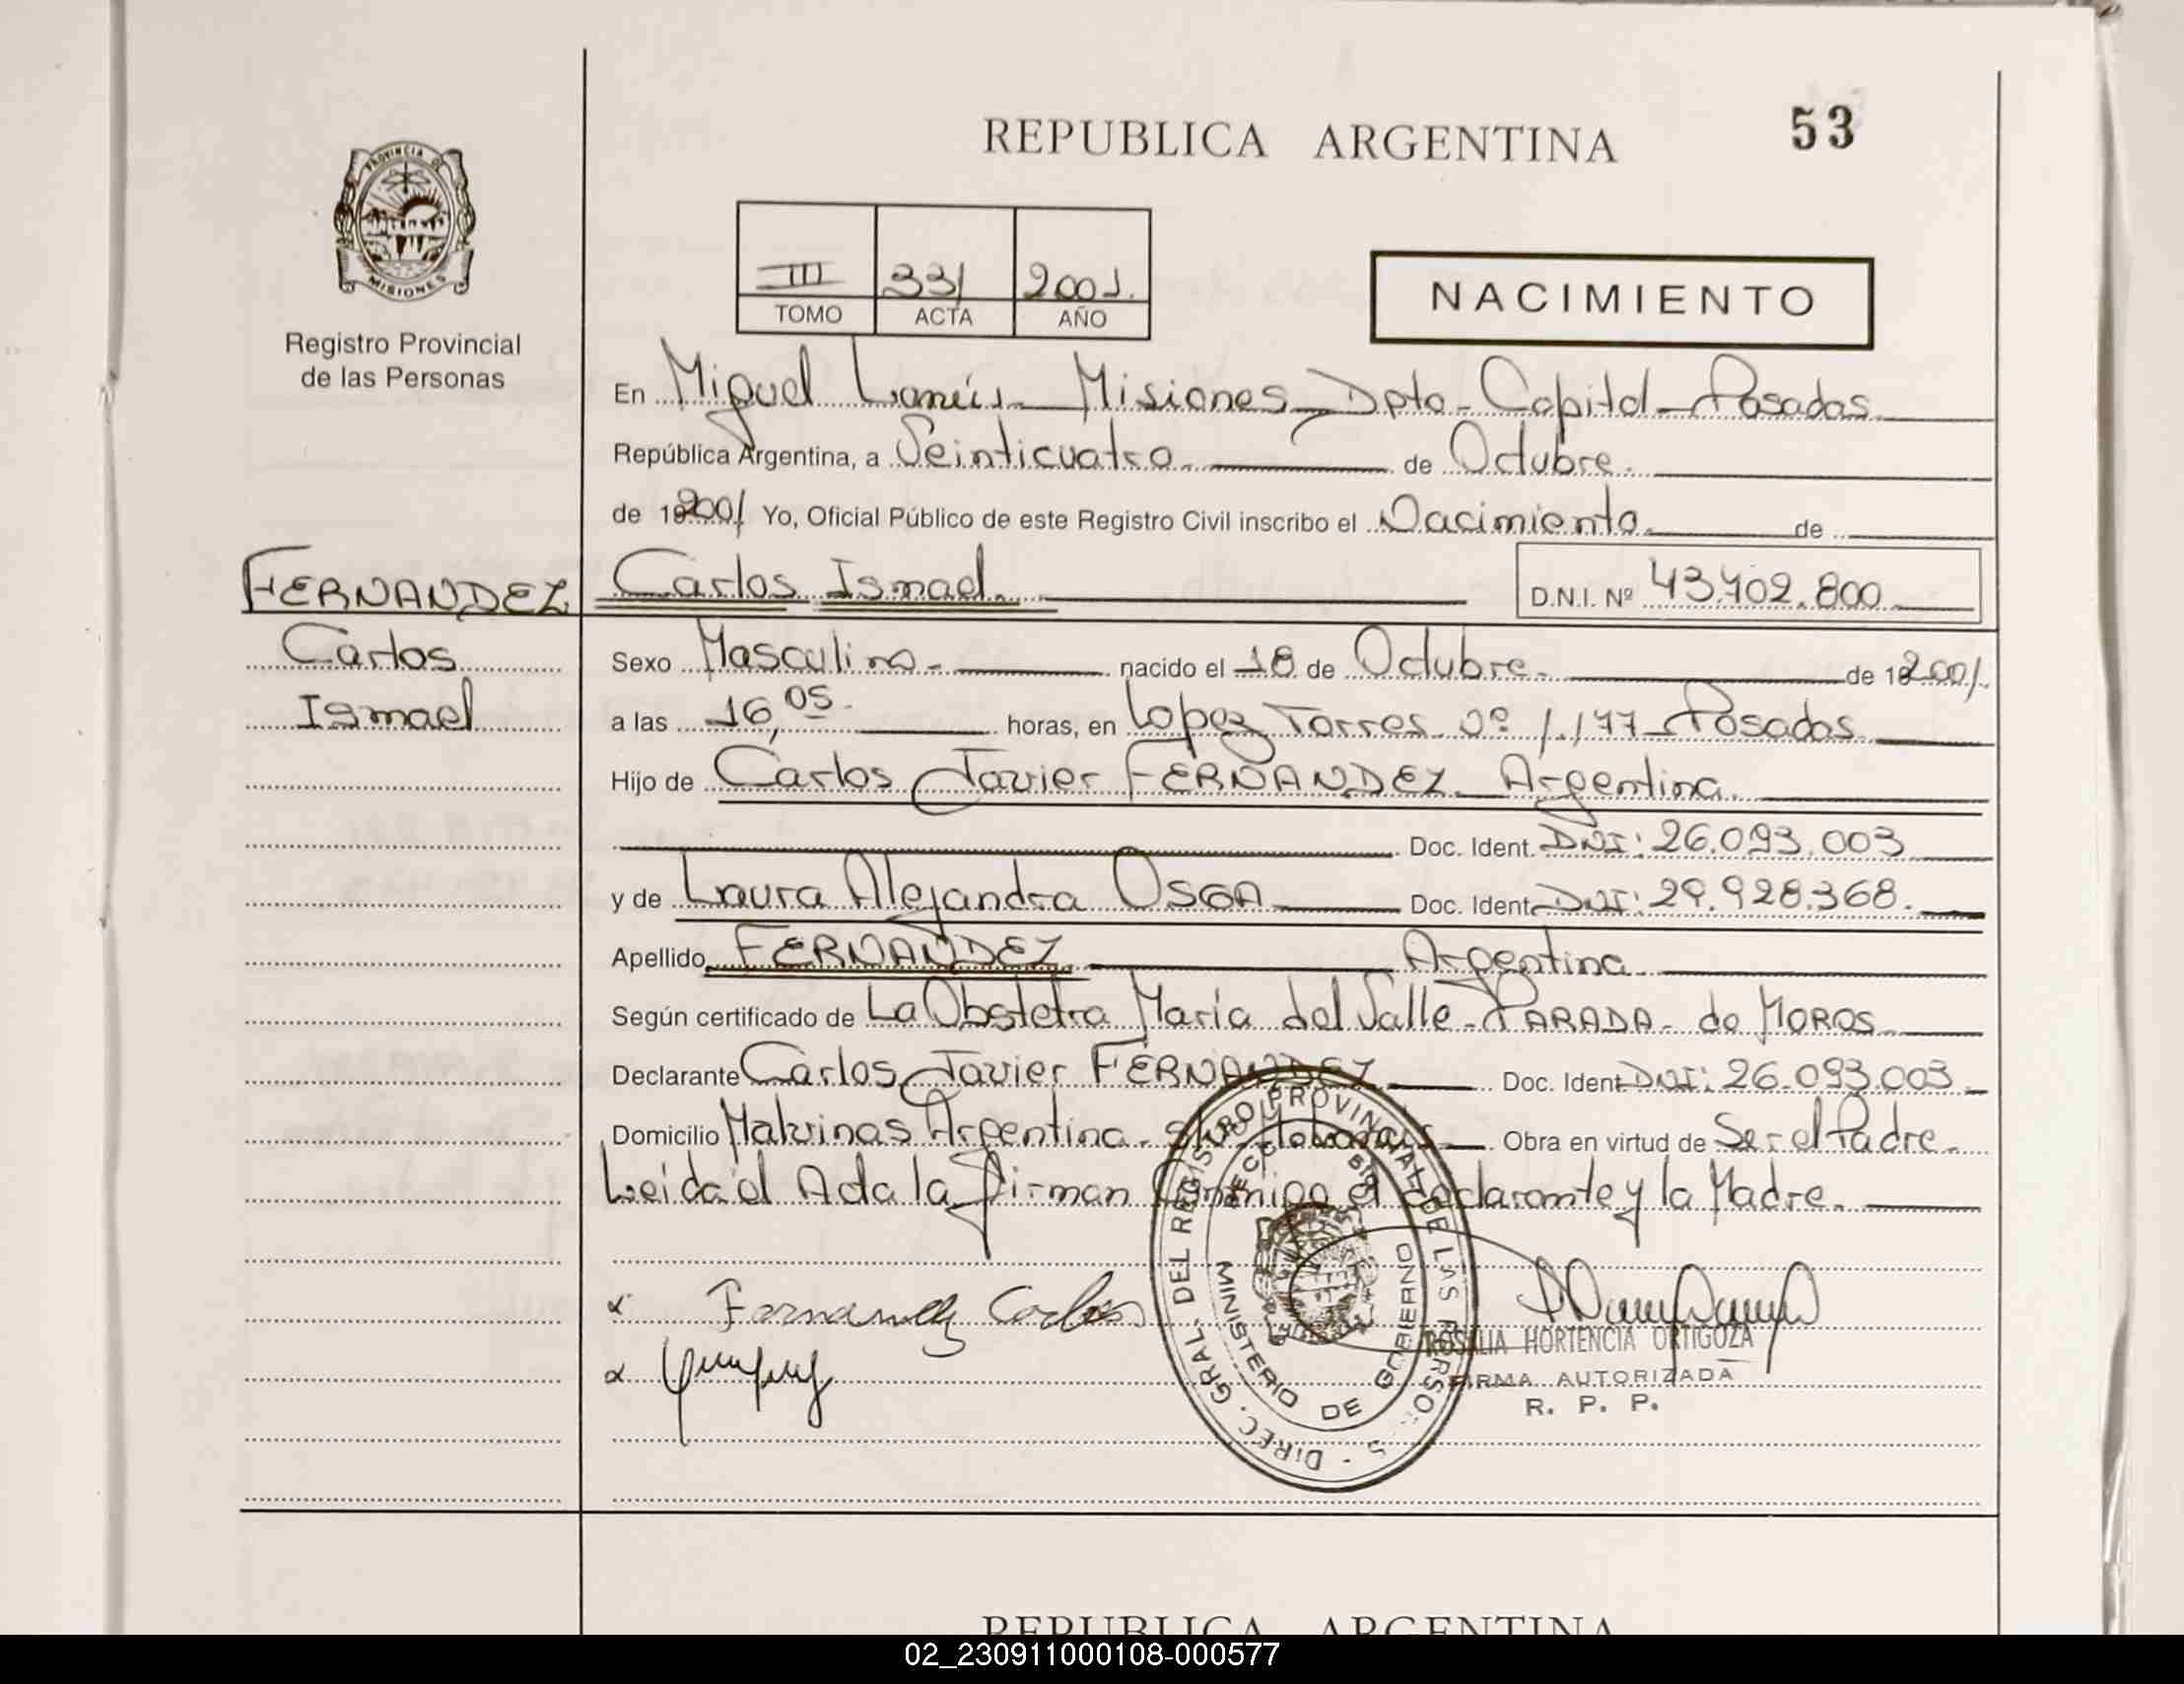 REPUBLICA ARGENTINA
53
PROVINCIA DE
MISIONES
Registro Provincial
de las Personas
III 331 2001.
TOMO ACTA AÑO
NACIMIENTO
En Miguel Lanús - Misiones - Dpto - Capital - Posadas
República Argentina, a Veinticuatro. de Octubre.
de 192001 Yo, Oficial Público de este Registro Civil inscribo el Nacimiento. de
FERNANDEZ Carlos Ismael. D.N.I. Nº 43.702.800
Carlos
Ismael
Sexo Masculino - nacido el 18 de Octubre. de 192001.
a las 16,05 horas, en Lopez Torres nº 1.177 - Posadas
Hijo de Carlos Javier FERNANDEZ - Argentina.
Doc. Ident. DNI: 26.093.003
y de Laura Alejandra OSGA Doc. Ident. DNI: 29.928.368.
Apellido FERNANDEZ Argentina
Según certificado de La Obstetra María del Valle - PARADA - de MOROS
Declarante Carlos Javier FERNANDEZ Doc. Ident DNI: 26.093.003
Domicilio Malvinas Argentina - Obra en virtud de Ser el Padre.
Leida el Acta la firman Conmigo el declarante y la Madre.
Fernandez Carlos
DIREC. GRAL. DEL REGISTRO PROVINCIAL DE LAS PERSONAS
MINISTERIO DE GOBIERNO
ROSALIA HORTENCIA ORTIGOZA
FIRMA AUTORIZADA
R. P. P.
REPUBLICA ARGENTINA
02_230911000108-000577